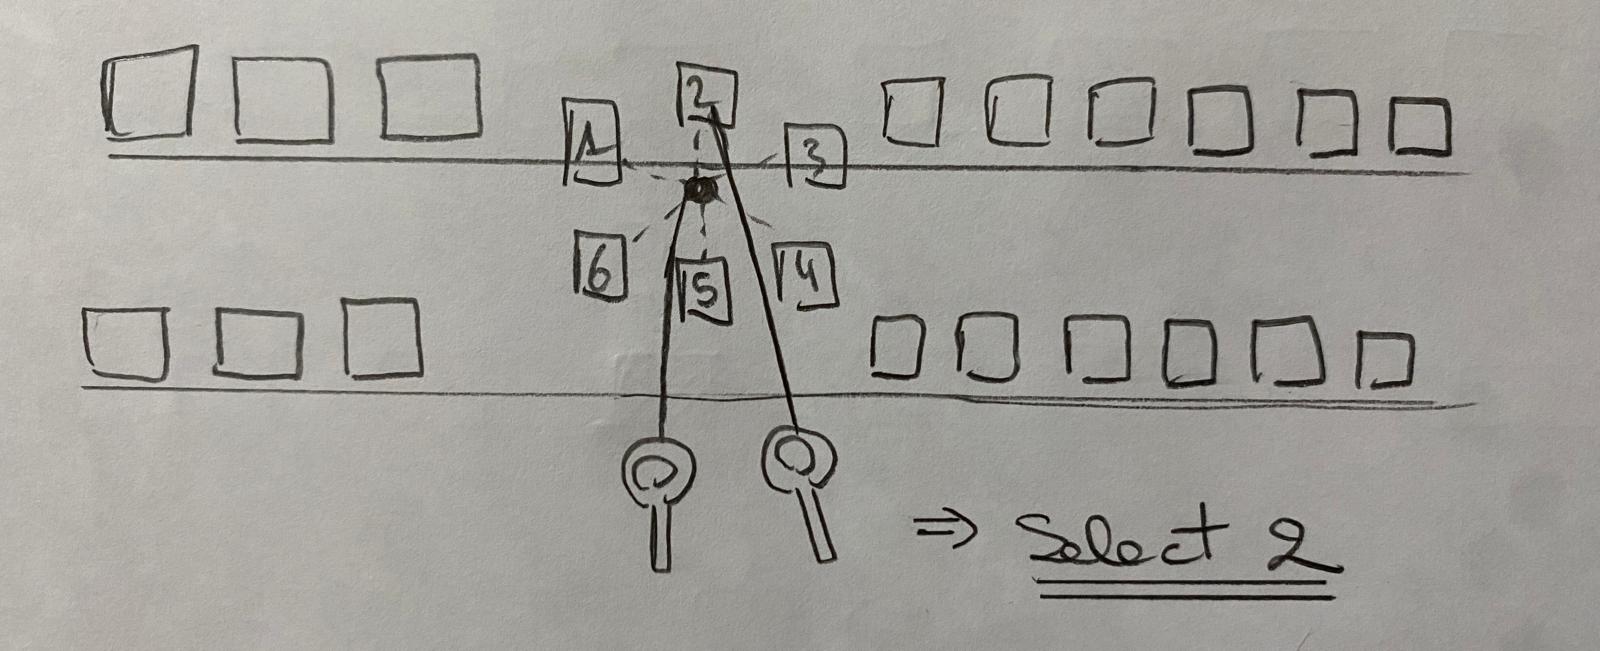 2
1
3
6
5
4
⇒ Select 2